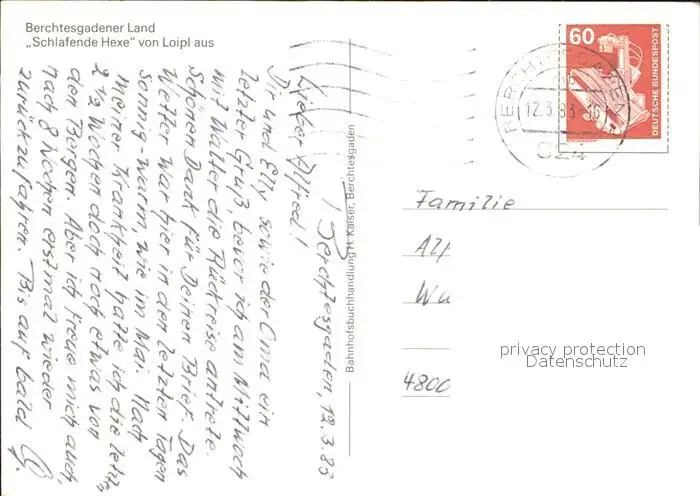 Berchtesgadener Land
„Schlafende Hexe" von Loipl aus
Berchtesgaden, 12.3.83
Lieber Alfred!
Dir und Elly sowie der Oma ein
letzter Gruß, bevor ich am Mittwoch
mit Walter die Rückreise antrete.
Schönen Dank für Deinen Brief. Das
Wetter war hier in den letzten Tagen
sonnig warm, wie im Mai. Nach
meiner Krankheit hatte ich die letztn
2 ½ Wochen doch noch etwas von
den Bergen. Aber ich freue mich auch,
nach 8 Wochen erstmal wieder
zurückzufahren. Bis auf bald
Bahnhofsbuchhandlung H. Kaiser, Berchtesgaden
60
DEUTSCHE BUNDESPOST
BERCHTESGADEN
12.3.83-16
824
Familie
Alf
Wu
4800
privacy protection
Datenschutz